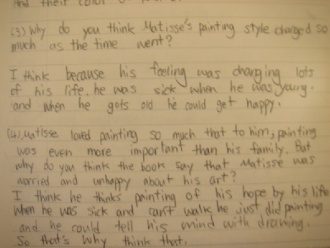 And their color or
(3) Why do you think Matisse's painting style changed so
much as the time went?
I think because his feeling was changing lots
of his life. he was sick when he was young.
and when he gots old he could get happy.
(4) Matisse loved painting so much that to him, painting
was even more important than his family. But
why do you think the book say that Matisse was
worried and unhappy about his art?
I think he thinks painting of his hope by his life
when he was sick and can't walk he just did painting
and he could tell his mind with drawing.
So that's why think that.